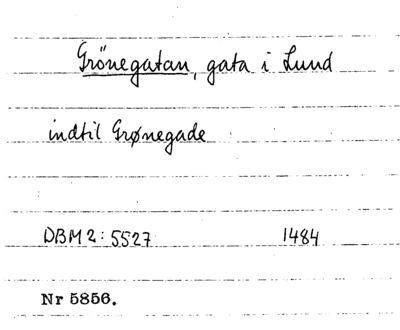 Grönegatan, gata i Lund
indtil Grønegade
DBM 2: 5527 1484
Nr 5856.